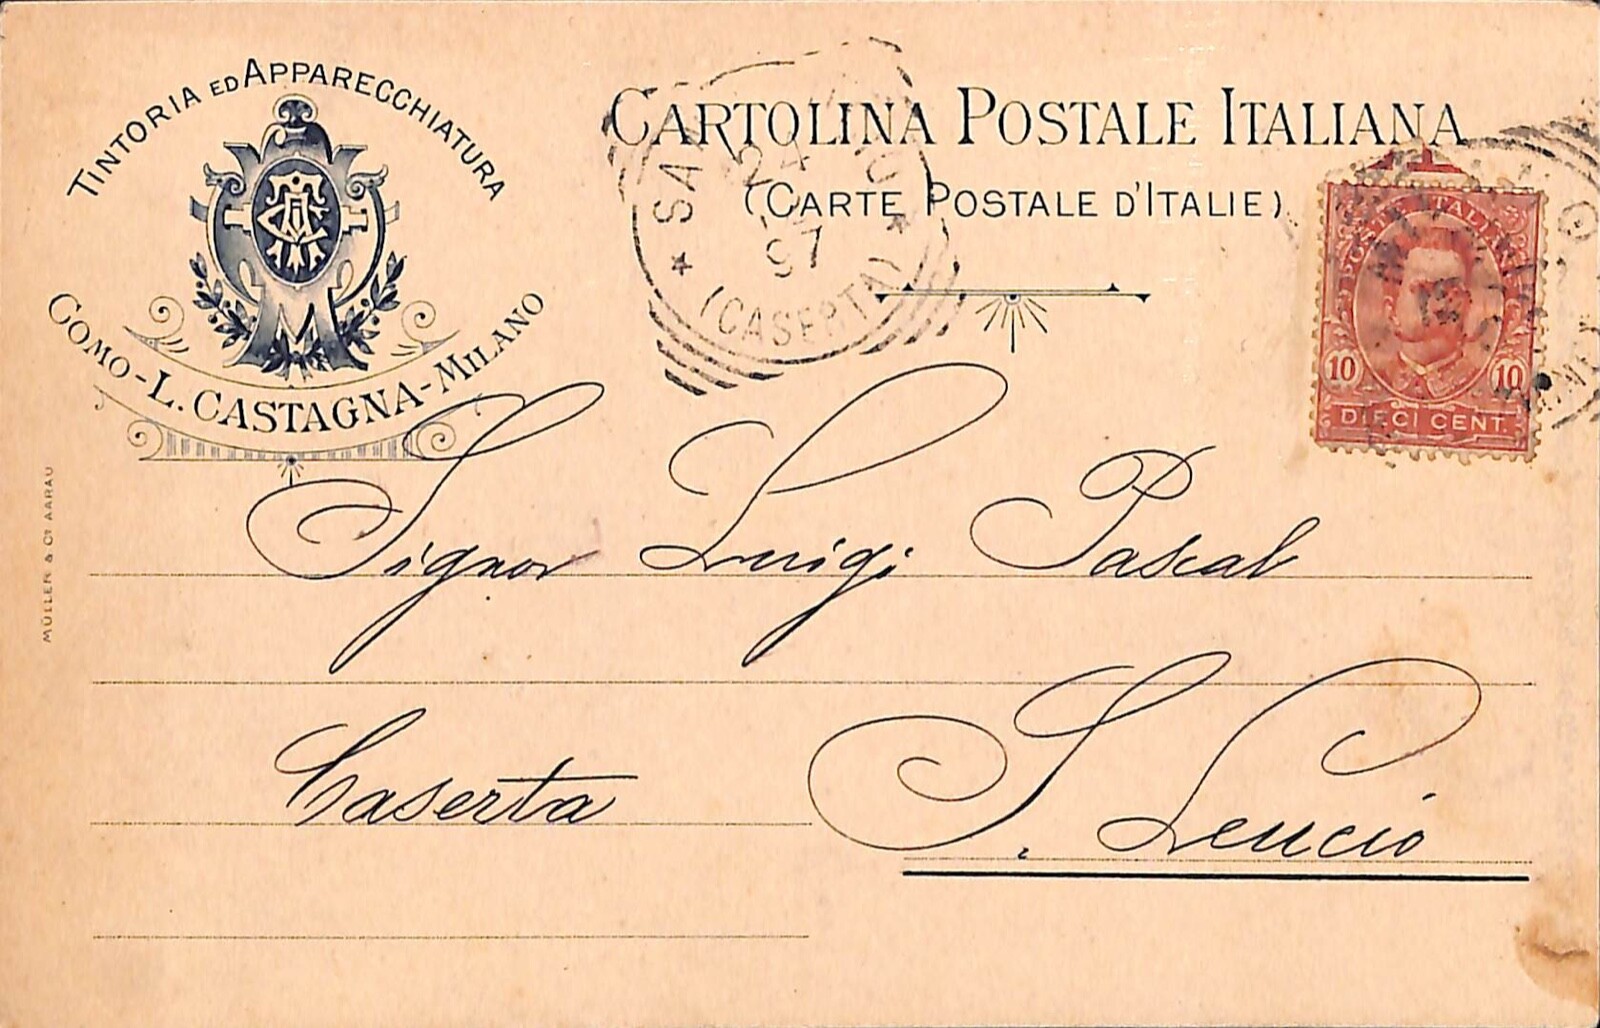 TINTORIA ED APPARECCHIATURA
COMO - L. CASTAGNA - MILANO
CARTOLINA POSTALE ITALIANA
(CARTE POSTALE D'ITALIE)
SAN
24
97
(CASERTA)
POSTE ITALIANE
10 10
DIECI CENT.
MÜLLER & Cie AARAU
Signor Luigi Pascal
Caserta
S. Leucio